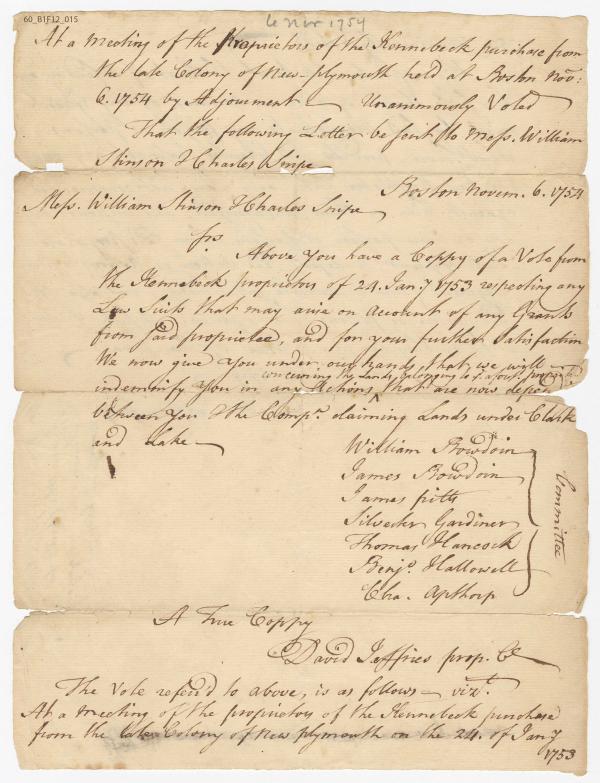 60_B1F12_015
6 Nov 1754
At a meeting of the Proprietors of the Kennebeck purchase from
the late Colony of New-plymouth held at Boston Nov:
6. 1754 by Adjournment — Unanimously Voted
That the following Letter be sent to Mess. William
Stinson & Charles Snipe
Boston Novem. 6. 1754
Mess. William Stinson & Charles Snipe
Srs.
Above You have a Coppy of a Vote from
the Kennebeck proprietors of 24. Jany 1753 respecting any
Law Suits that may arise on account of any Grants
from said proprietee, and for your further Satisfaction
We now give You under our hands, that we will
concerning the Lands belonging to
indemnify You in any Actions, ^ that are now
between you & the Compa. claiming Lands under Clark
and Lake —
William Bowdoin
James Bowdoin
James pitts
Silvester Gardiner
Thomas Hancock
Benjo. Hallowell
Cha. Apthorp
Committee
A True Coppy
David Jeffries prop. Cl
The Vote refer'd to above, is as follows — vizt.
At a meeting of the proprietors of the Kennebeck purchase
from the late Colony of New plymouth on the 24. of Jany
1753